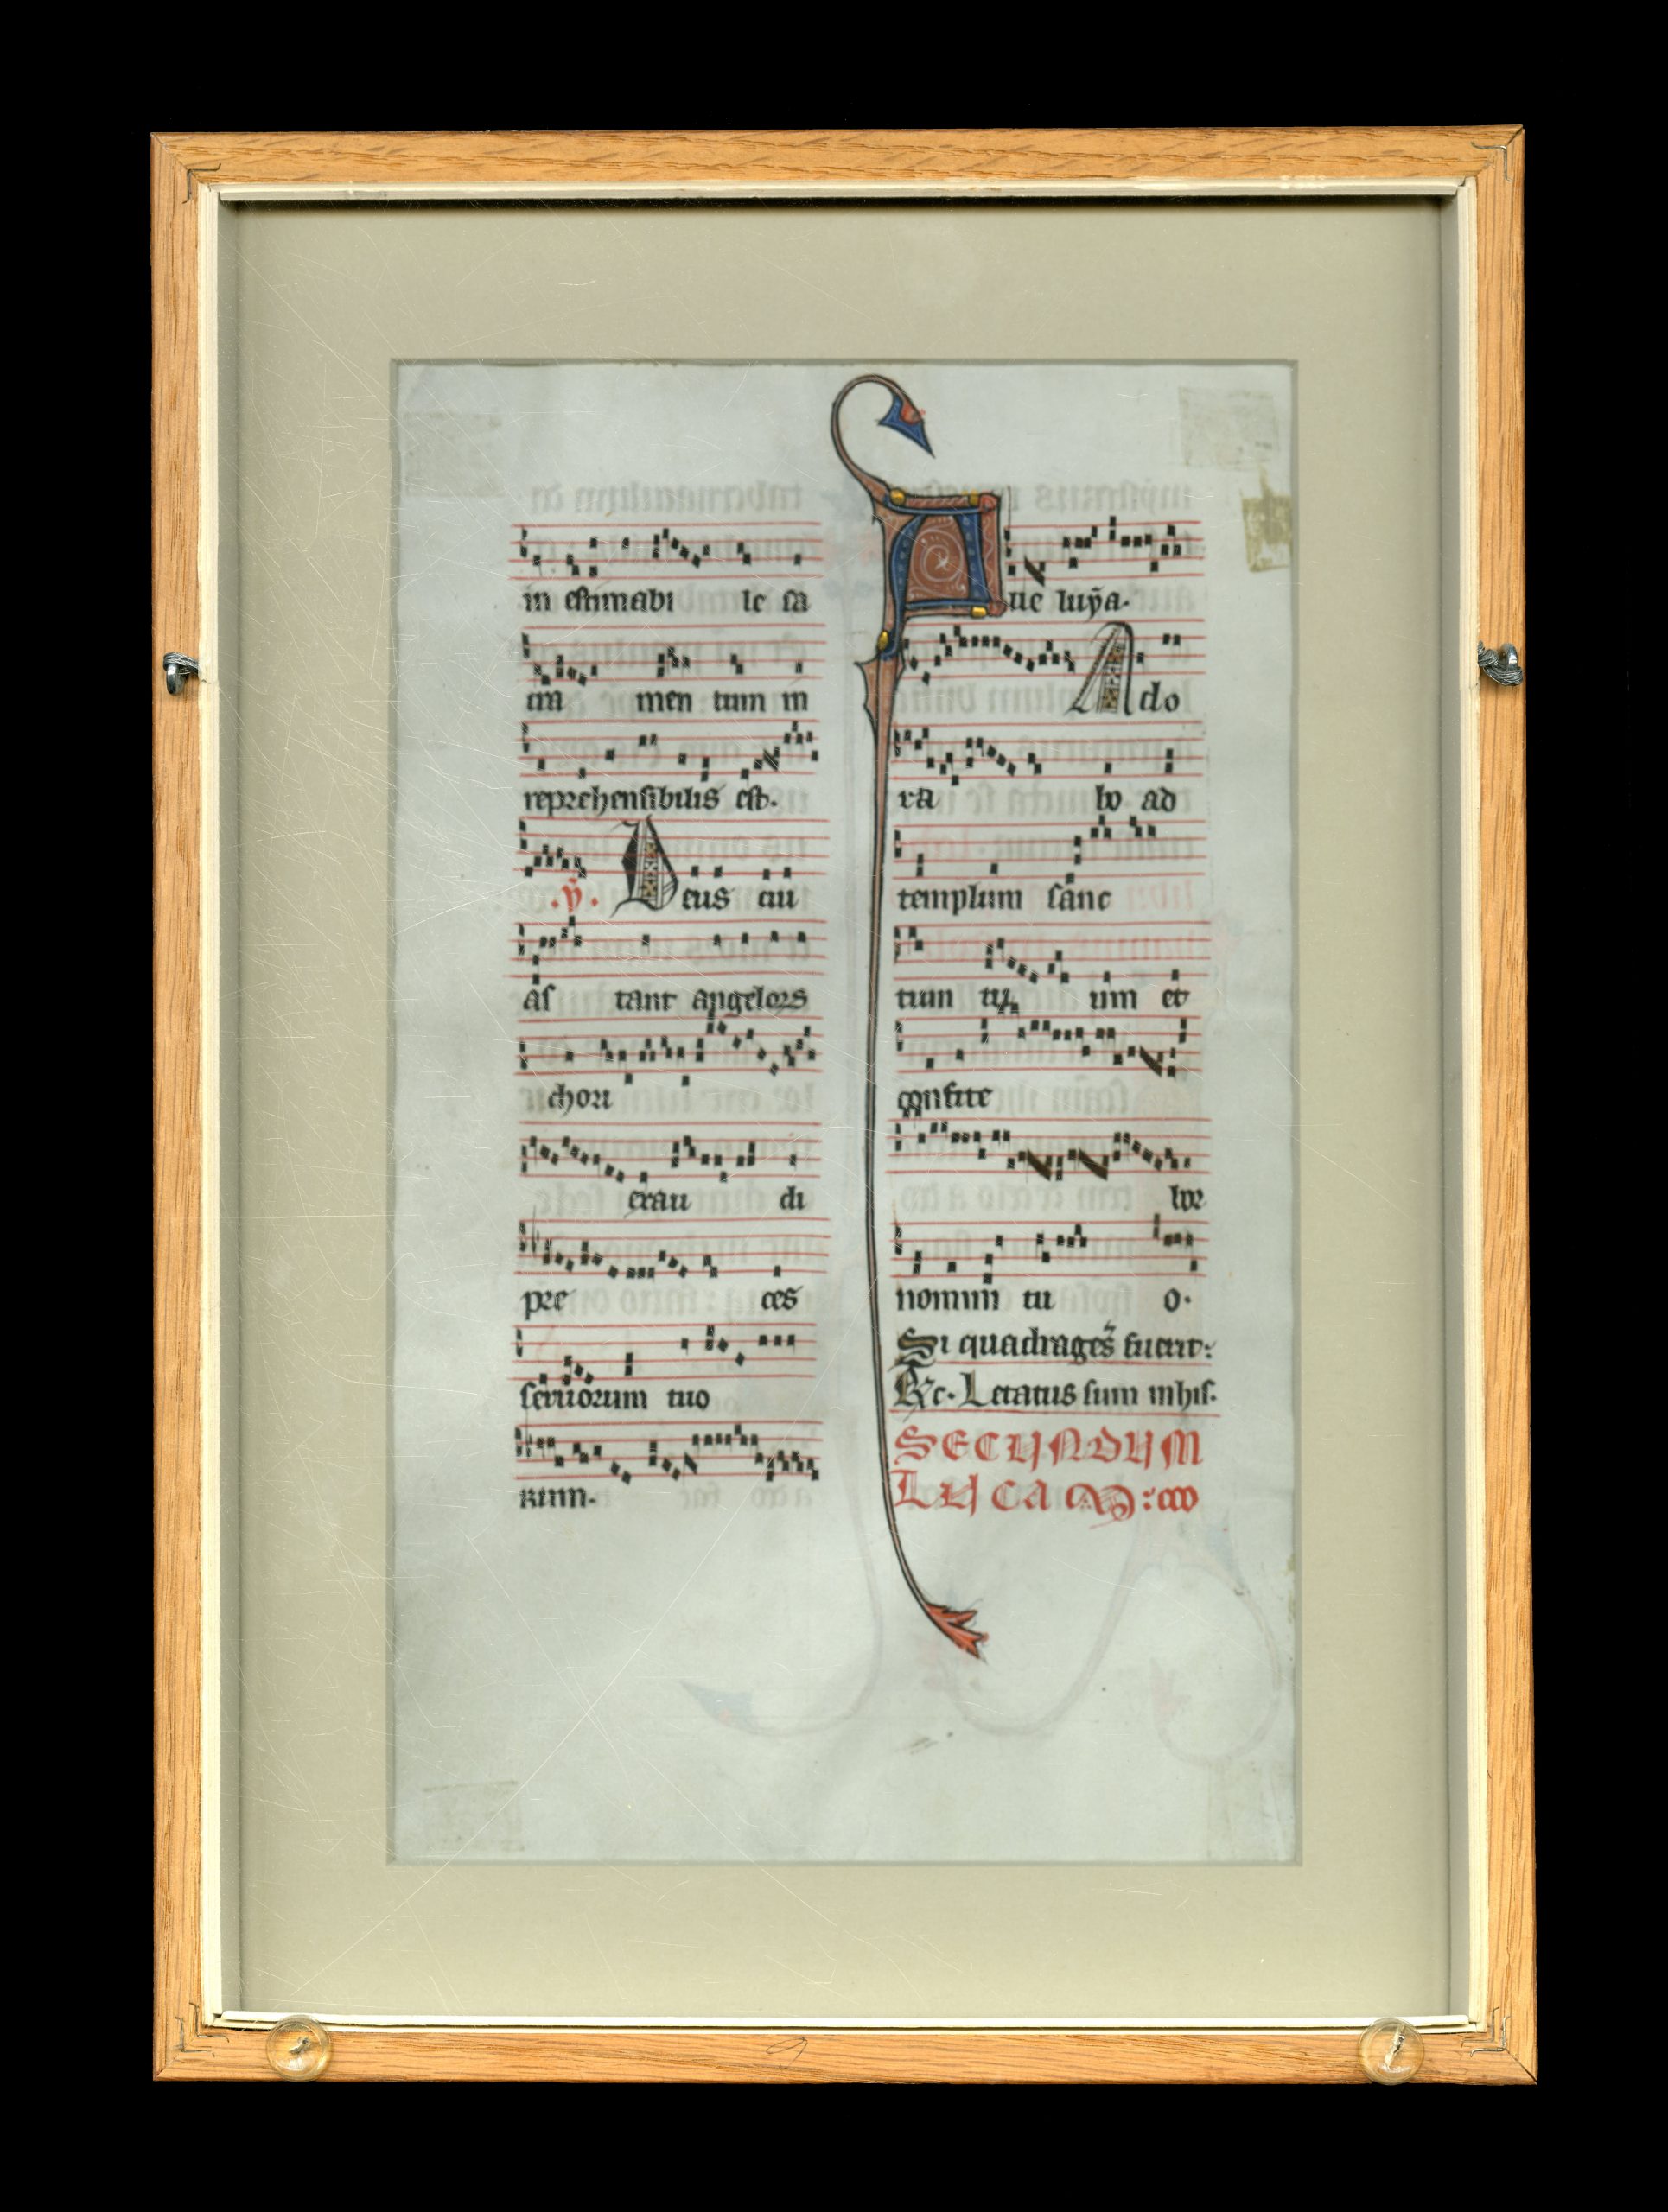 in estimabi le sa
cra men tum in
reprehensibilis est.
.v̄. Deus cui
as tant angelorz
chori
exau di
pre ces
seruorum tuo
rum.
Alle luȳa.
Ado
ra bo ad
templum sanc
tum tu um et
confite
bor
nomini tu o.
Si quadrages̄ fuerit:
Letatus sum in his.
SECUNDUM
LUCAM: